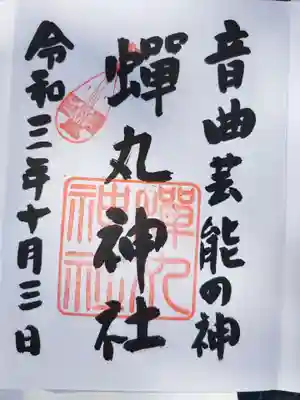 音曲芸能の神
蟬丸神社
令和三年十月三日
蟬丸
神社